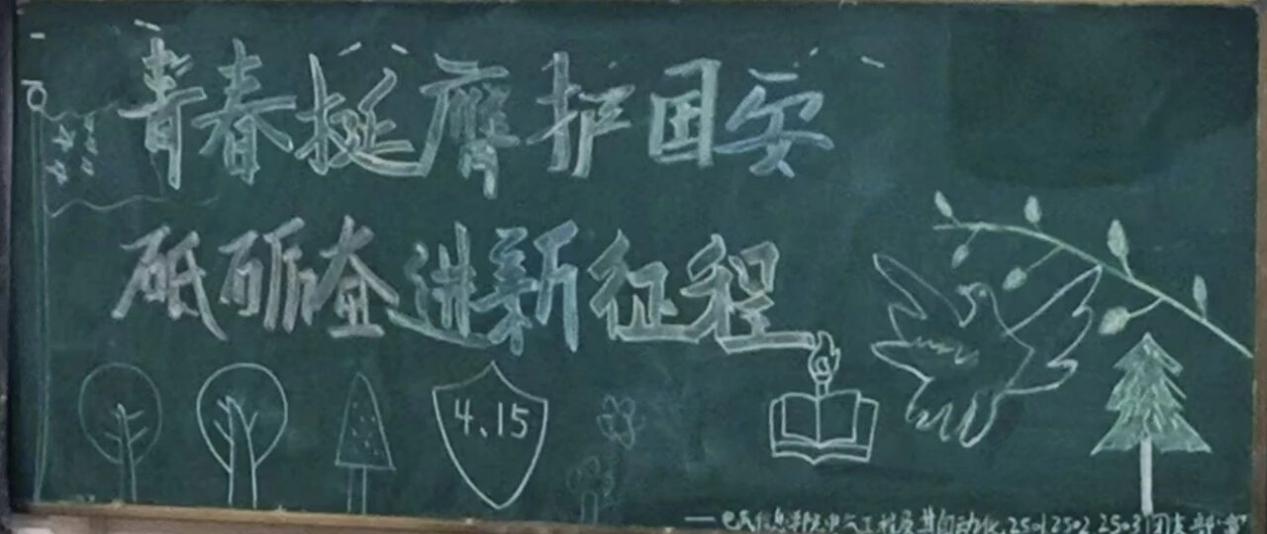 青春挺膺护国安
砥砺奋进新征程
4.15
——电气信息学院电气工程及其自动化2501 2502 2503团支部宣